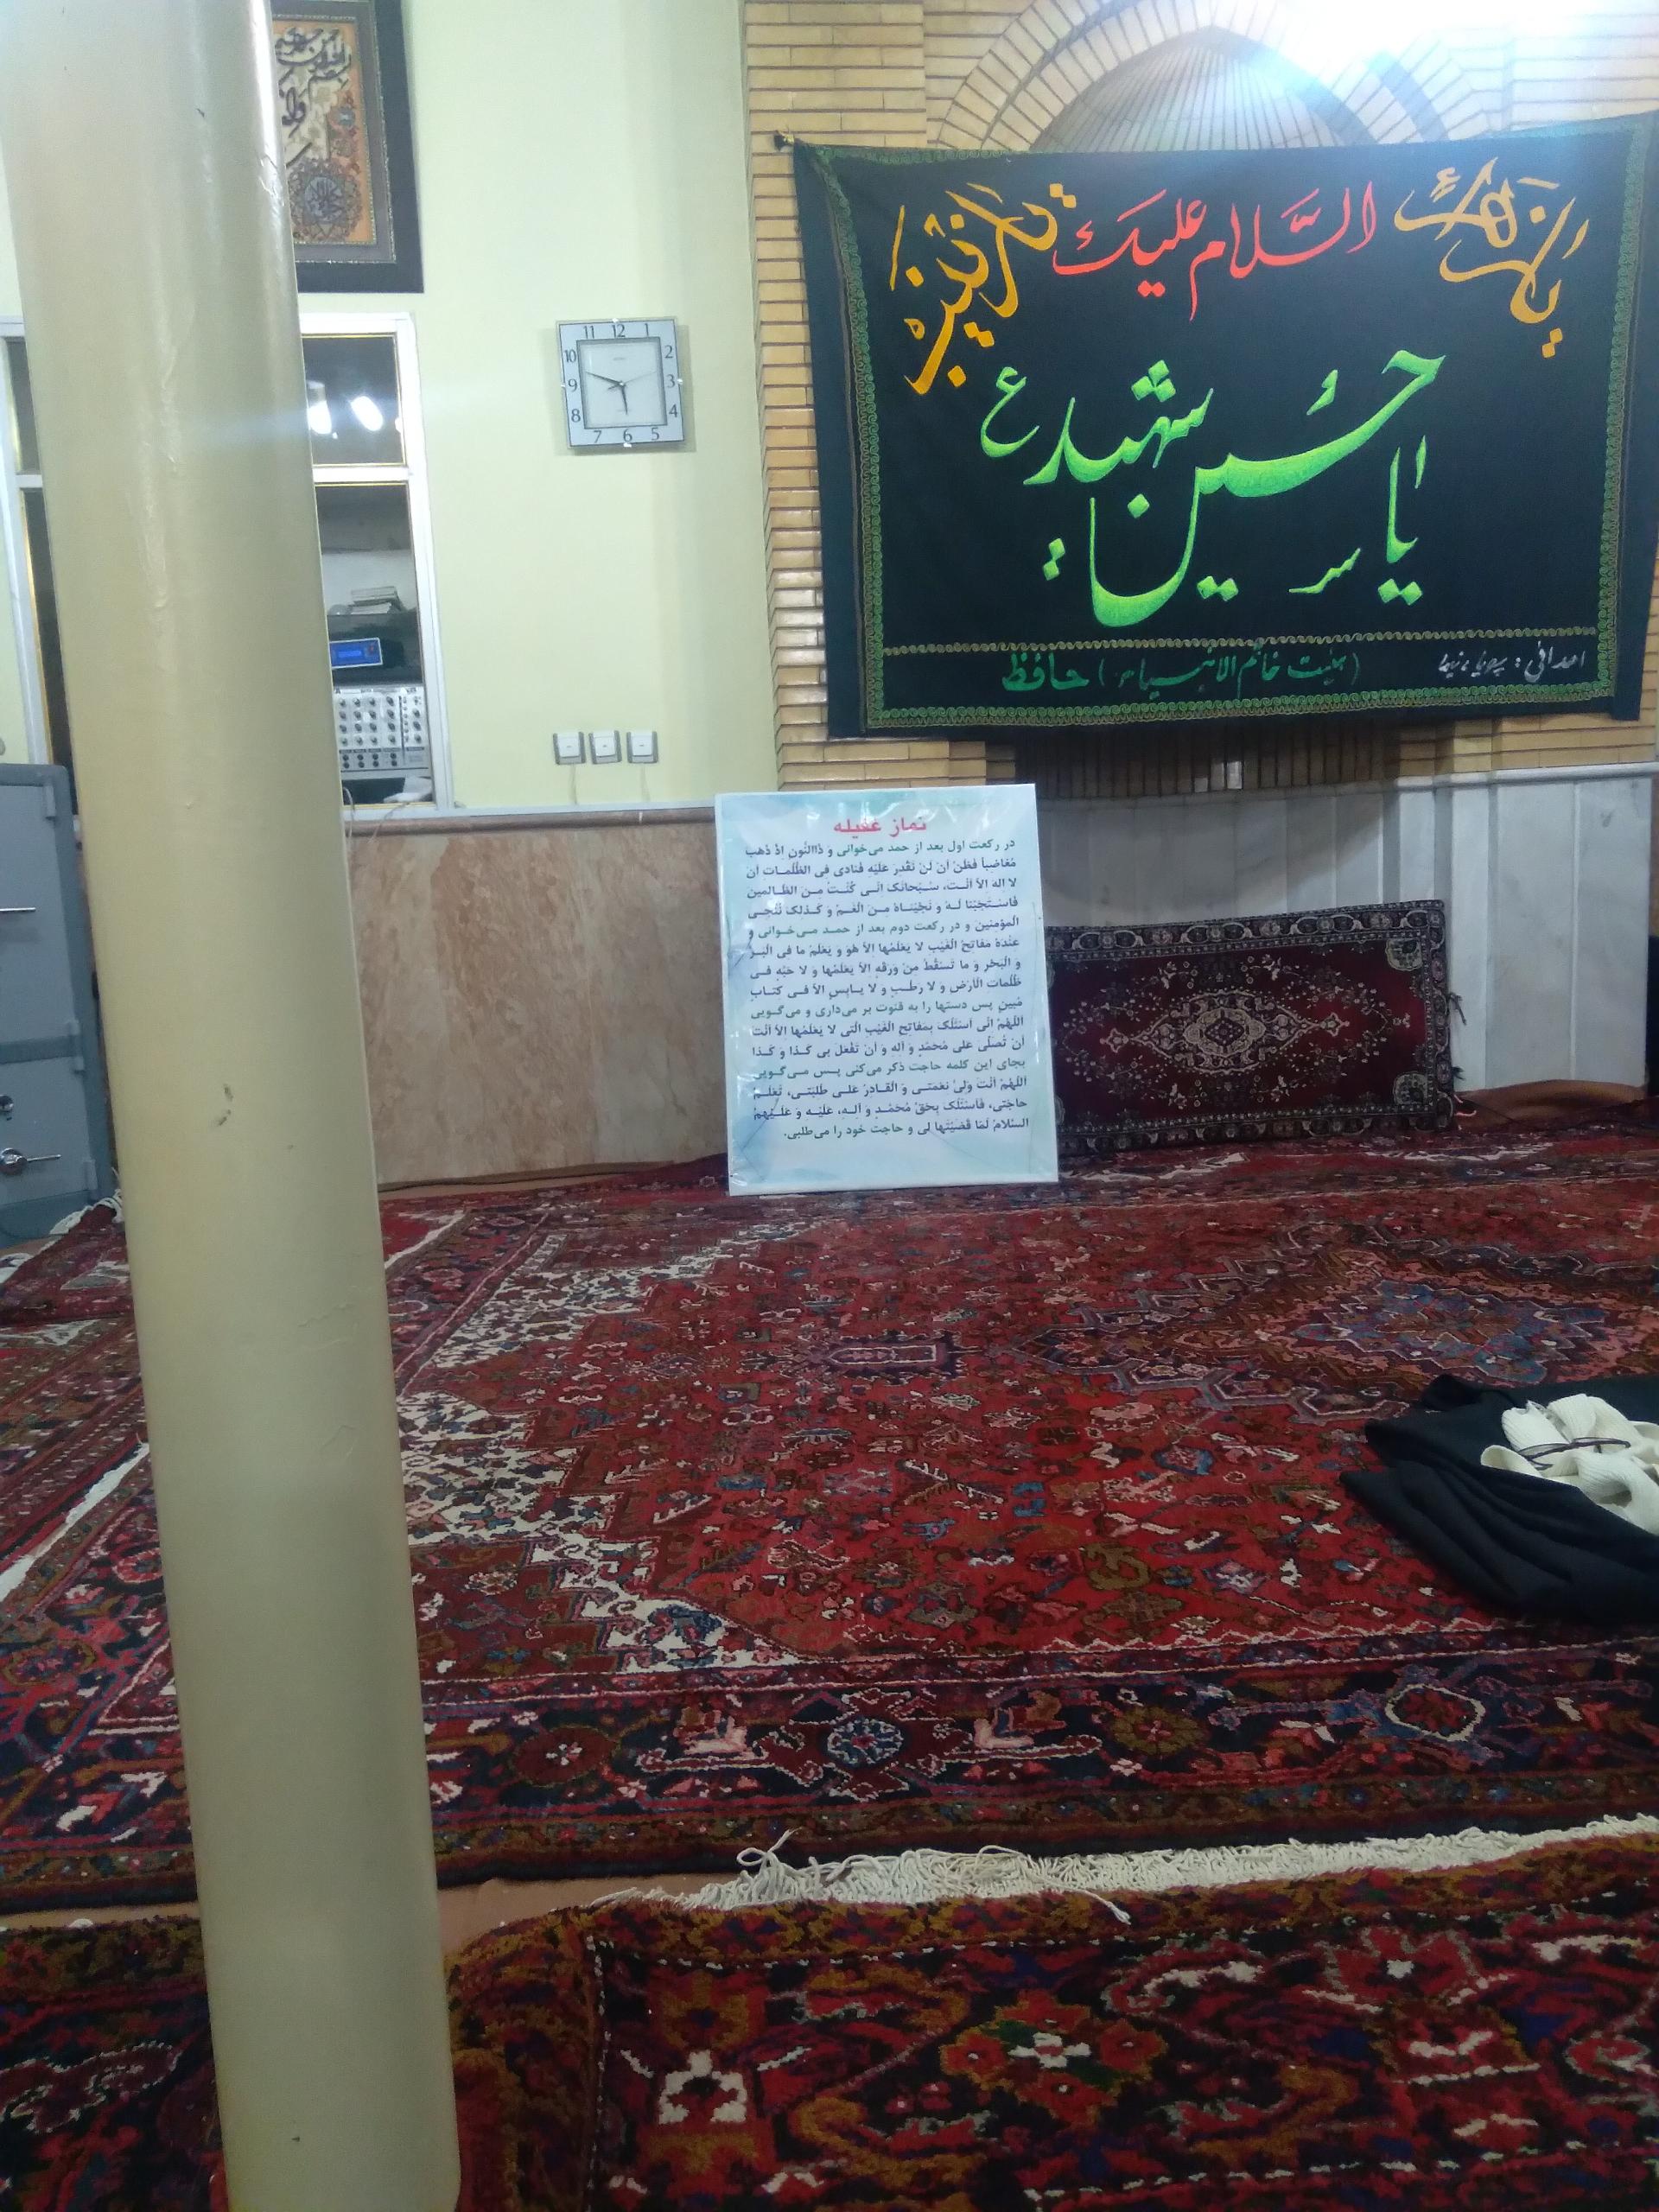 السّلام عليك
يا زهرا
يا حُسين شهيد ع
(هيئت خاتم الانبياء) حافظ
اهدائى :
11 12 1
10 2
9 3
8 4
7 6 5
نماز غفیله
در رکعت اول بعد از حمد می‌خوانی و ذَاالنُّونِ اِذْ ذَهَبَ
مُغاضِباً فَظَنَّ اَنْ لَنْ نَقْدِرَ عَلَیْهِ فَنادی فِی الظُّلُمـاتِ اَنْ
لا اِلهَ اِلاّ اَنْـتَ، سُـبْحانَکَ اِنّـی کُنْـتُ مِـنَ الظّـالِمینَ
فَاسـتَجَبْنا لَـهُ وَ نَجَّیْنـاهُ مـِنَ الْغَـمِّ وَ کَـذلِکَ نُنْجِـی
الْمُؤمِنینَ و در رکعت دوم بعد از حمـد مـی‌خـوانی وَ
عِنْدَهُ مَفاتِحُ الْغَیْبِ لا یَعْلَمُها اِلاّ هُوَ وَ یَعْلَمُ ما فِی الْبَـرِّ
وَ الْبَحْرِ وَ ما تَسْقُطُ مِنْ وَرَقَهٍ اِلاّ یَعْلَمُها وَ لا حَبَّهٍ فـی
ظُلُمات الْاَرْضِ وَ لا رَطْـبٍ وَ لا یـابِسٍ اِلاّ فـی کتـابٍ
مُبینٍ پس دستها را به قنوت بر می‌داری و می‌گـویی
اَللّهُمَّ اِنّی اَسئَلُکَ بِمَفاتِحِ الْغَیْبِ الَّتی لا یَعْلَمُها اِلاّ اَنْتَ
اَنْ تُصَلِّیَ عَلی مُحَمَّدٍ وَ آلِهِ وَ اَنْ تَفْعَلَ بی کَذا وَ کَـذا
بجای این کلمه حاجت ذکر می‌کنی پـس مـی‌گـویی
اَللّهُمَّ اَنْتَ وَلِیُّ نِعْمَتـی وَ الْقـادِرُ عَلـی طَلِبَتـی، تَعْلَـمُ
حاجَتی، فَاَسْئَلُکَ بِحَقِّ مُحَمَّـدٍ وَ آلِـهِ، عَلَیْـهِ وَ عَلَـیْهِمُ
السَّلامُ لَمّا قَضَیْتَها لی و حاجت خود را می‌طلبی.